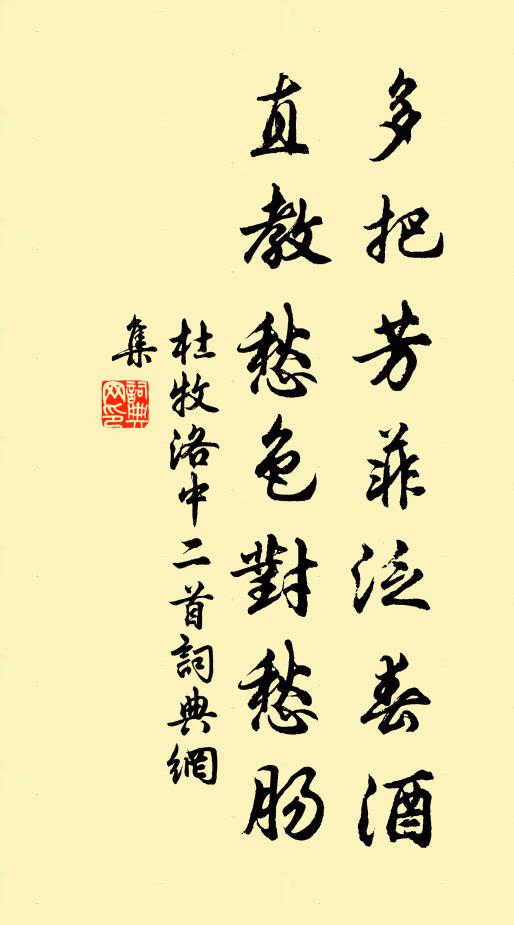 多把芳菲泛春酒
直教愁色對愁肠
杜牧洛中二首詞典網
集
詞典网印